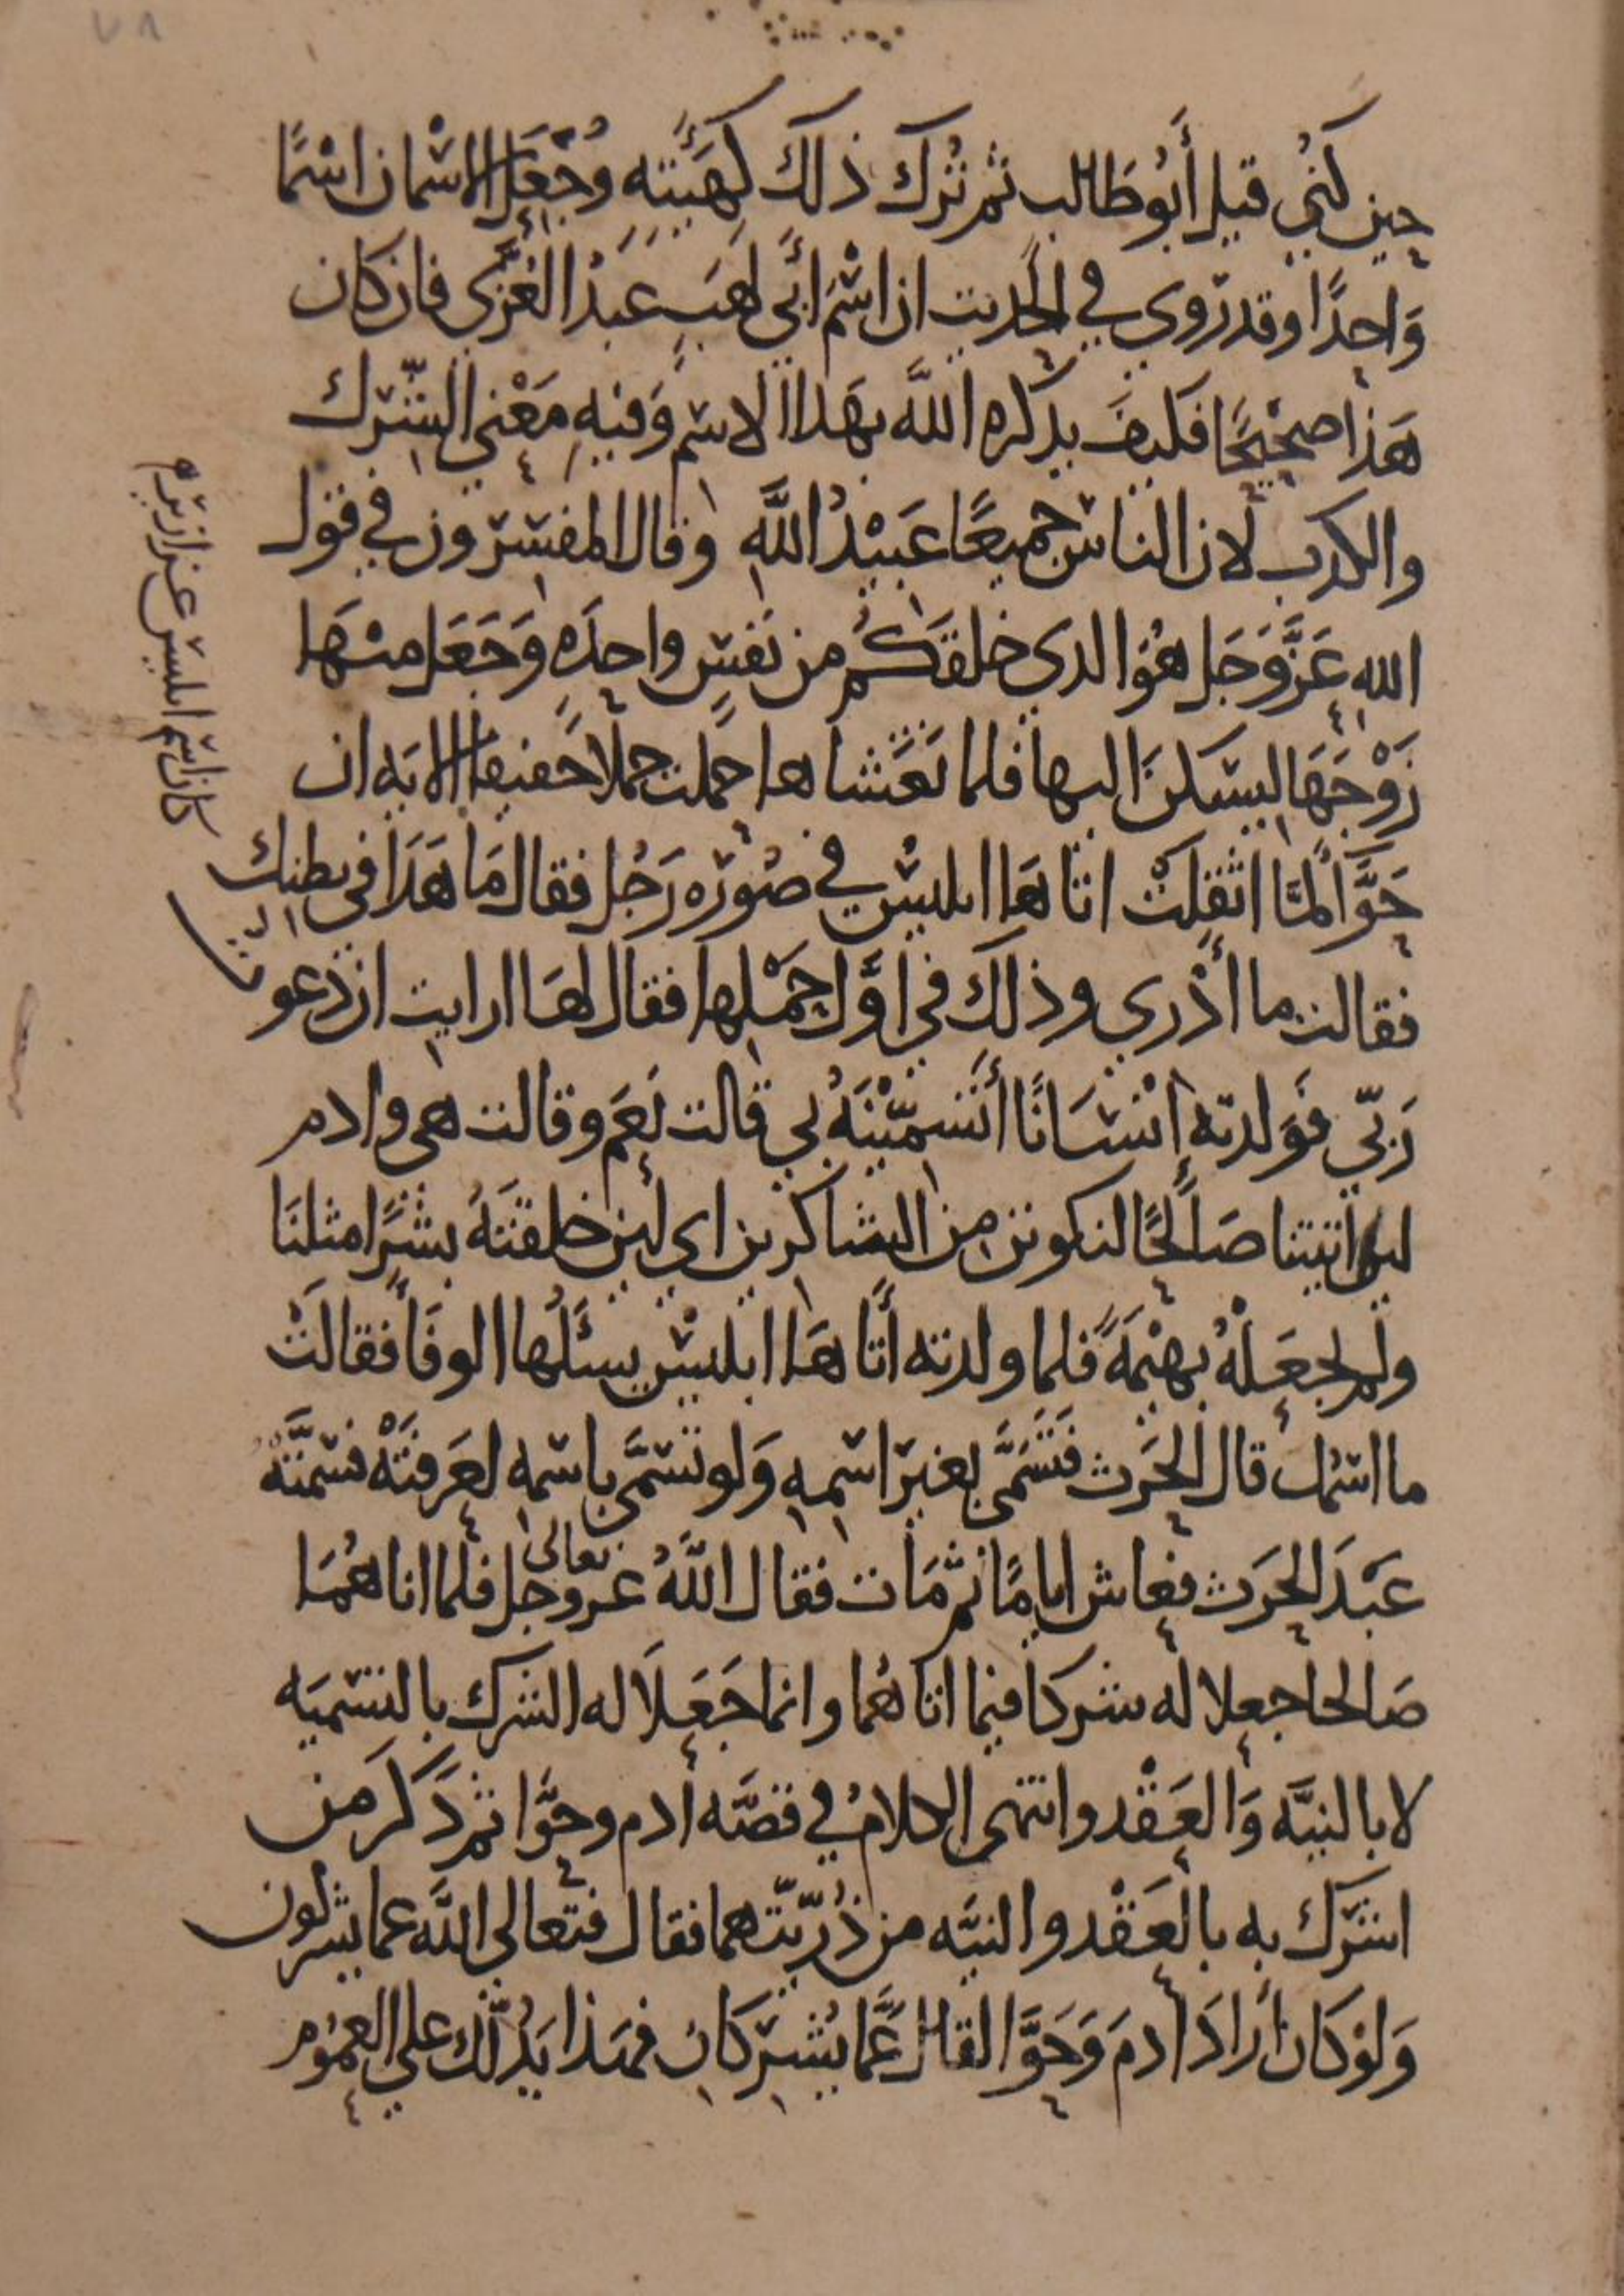 حين كُنِي قيل أَبُو طَالب ثم تُرك ذلك كهَيْئتِهِ وجُعِلَ الاسْمان اسْمًا
وَاحِدًا وقد رُوي في الحَديث ان اسْمَ ابي لهَبٍ عَبْدُ العُزَّى فان كان
هَذا صَحِيْحًا فكيفَ يذكره اللَّه بهَذا الاسم وَفيهِ مَعْنى الشّرك
والكذب لان الناس جميعًا عَبِيْدُ اللَّهِ وقال المفسّرون في قول
الله عَزَّ وَجَل هُوَ الذي خلقَكُم من نَفسٍ واحِدَهٍ وَجَعَل مِنْهَا
زَوْجَهَا ليسْكنَ اليها فلما تَغَشاها حَملت حملا خَفيفا الايَه ان
حَوَّا لمَّا اثقلَتْ اتاهَا ابليْس في صُوْرَه رَجُل فقال مَا هَذا في بطنِك
فقالت ما أدْري وذلك في اوَّل حَمْلِها فقال لهَا ارايت ان دَعوتُ
رَبّي فوَلدتِهِ انْسَانًا أَتُسَمّيْنَهُ بي قالت نَعَم وقالت هي وادم
لين اتيتنا صَالحًا لنكونن مِن الشاكرين اي لين خلقتَهُ بشَرًا مثلنَا
ولم تجعَلْهُ بهيْمَةً فلما ولدته أتاهَا ابليْس يسئَلُها الوفَا فقالَتْ
ما اسْمُك قال الحَرث فتَسَمَّى بغير اسْمِهِ وَلو تسَمَّى باسْمِهِ لعَرفَتْهُ فسَمَّتْهُ
عَبْدَ الحَرث فعَاش ايامًا ثم مَات فقال اللَّهُ عز وجل تعالى فلما اتاهُمَا
صَالحا جعلا له شركا فيما اتاهُما وانما جَعَلَا له الشرك بالتسْميَه
لا بالنيَّه وَالعَقْد وانتهى الكلامُ في قصَّه ادم وحَوَّا ثم ذَكرَ مَن
اشرَك به بالعَقْد والنيَّه من ذُرّيّتهما فقال فتَعَالى اللَّه عما يشركون
وَلوْ كَان أرَادَ ادمَ وَحَوَّا لقال عَمَّا يُشْرِكَانِ فهَذا يَدُلُّك على العمُوْم
كان اسم ابليس عزازيرم